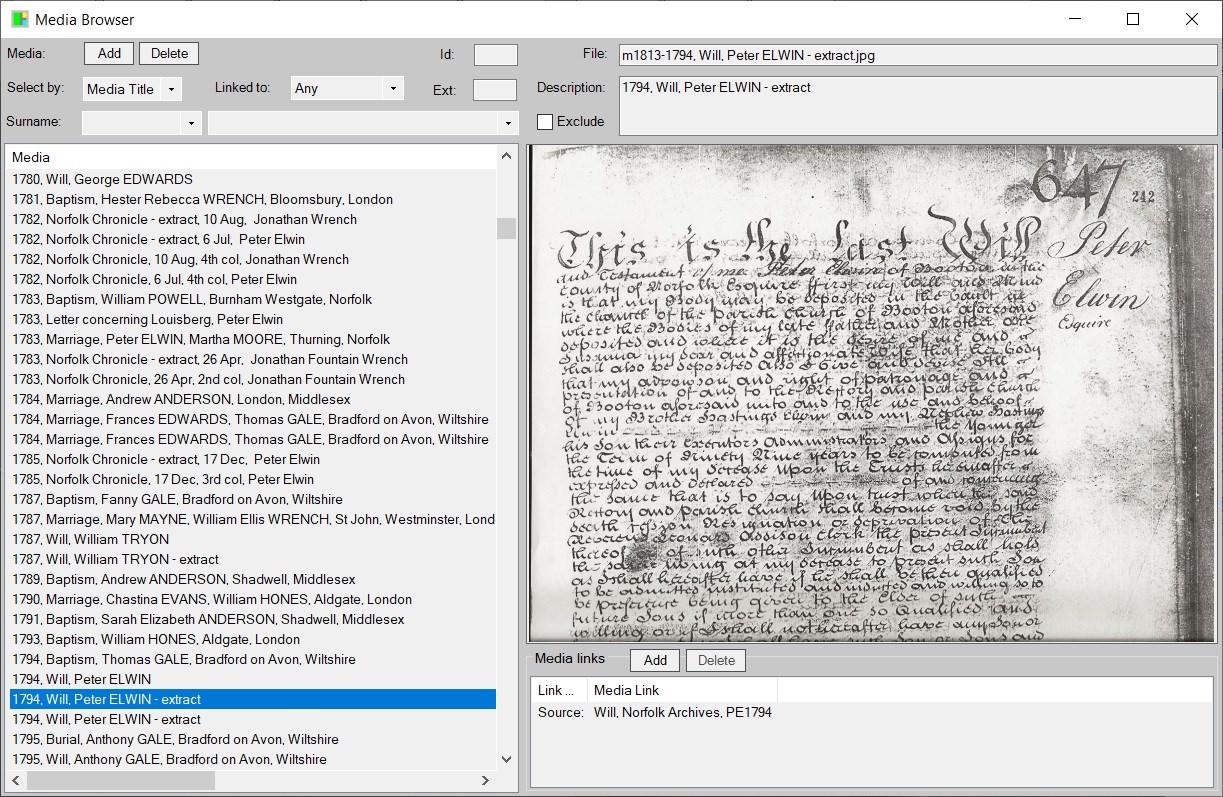 Media Browser
Media: Add Delete Id:
Select by: Media Title Linked to: Any Ext:
Surname:
File: m1813-1794, Will, Peter ELWIN - extract.jpg
Description: 1794, Will, Peter ELWIN - extract
Exclude
Media
1780, Will, George EDWARDS
1781, Baptism, Hester Rebecca WRENCH, Bloomsbury, London
1782, Norfolk Chronicle - extract, 10 Aug,  Jonathan Wrench
1782, Norfolk Chronicle - extract, 6 Jul,  Peter Elwin
1782, Norfolk Chronicle, 10 Aug, 4th col, Jonathan Wrench
1782, Norfolk Chronicle, 6 Jul, 4th col, Peter Elwin
1783, Baptism, William POWELL, Burnham Westgate, Norfolk
1783, Letter concerning Louisberg, Peter Elwin
1783, Marriage, Peter ELWIN, Martha MOORE, Thurning, Norfolk
1783, Norfolk Chronicle - extract, 26 Apr,  Jonathan Fountain Wrench
1783, Norfolk Chronicle, 26 Apr, 2nd col, Jonathan Fountain Wrench
1784, Marriage, Andrew ANDERSON, London, Middlesex
1784, Marriage, Frances EDWARDS, Thomas GALE, Bradford on Avon, Wiltshire
1784, Marriage, Frances EDWARDS, Thomas GALE, Bradford on Avon, Wiltshire
1785, Norfolk Chronicle - extract, 17 Dec,  Peter Elwin
1785, Norfolk Chronicle, 17 Dec, 3rd col, Peter Elwin
1787, Baptism, Fanny GALE, Bradford on Avon, Wiltshire
1787, Marriage, Mary MAYNE, William Ellis WRENCH, St John, Westminster, Lond
1787, Will, William TRYON
1787, Will, William TRYON - extract
1789, Baptism, Andrew ANDERSON, Shadwell, Middlesex
1790, Marriage, Chastina EVANS, William HONES, Aldgate, London
1791, Baptism, Sarah Elizabeth ANDERSON, Shadwell, Middlesex
1793, Baptism, William HONES, Aldgate, London
1794, Baptism, Thomas GALE, Bradford on Avon, Wiltshire
1794, Will, Peter ELWIN
1794, Will, Peter ELWIN - extract
1794, Will, Peter ELWIN - extract
1795, Burial, Anthony GALE, Bradford on Avon, Wiltshire
1795, Will, Anthony GALE, Bradford on Avon, Wiltshire
647
242
This is the last Will
Peter
Elwin
Esquire
and Testament of me Peter Elwin of Booton in the
County of Norfolk Esquire ffirst my Will and Mind
is that my Body may be deposited in the Vault in
the Chancel of the Parish Church of Booton aforesaid
where the Bodies of my late ffather and Mother are
deposited and what it is the desire of me and
Susanna my dear and affectionate Wife that her Body
shall also be deposited Also I Give and devise all
that my advowson and right of patronage and
presentation of and to the Rectory and parish Church
of Booton aforesaid unto and to the use and behoof
of my Brother Hastings Elwin and my Nephew Hastings
the Younger
his Son their Executors Administrators and Assigns for
the Term of Ninety Nine years to be computed from
the time of my decease upon the Trusts hereinafter
expressed and declared of and concerning
the same that is to say upon trust when the said
Rectory and parish Church shall become void by the
death Cession Resignation or deprivation of the
Reverend Leonard Addison Clerk the present Incumbent
thereof of such other Incumbent as shall hold
the same living at my decease to present such Son
as I shall hereafter have if he shall be then qualified
to be admitted instituted and inducted and willing so to
be preference being given to the Elder of such
future Sons if more than one so qualified and
willing or if I shall not hereafter have any Son or
Media links Add Delete
Link ... Media Link
Source: Will, Norfolk Archives, PE1794